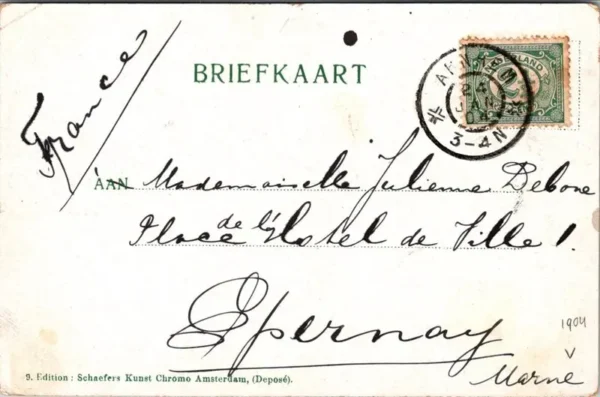 France
BRIEFKAART
ARNHEM
24
3-4N
NEDERLAND
AAN Mademoiselle Julienne Debone
Place de l'Hotel de Ville 1.
Epernay
1904
V
Marne
9. Edition : Schaefers Kunst Chromo Amsterdam, (Deposé).